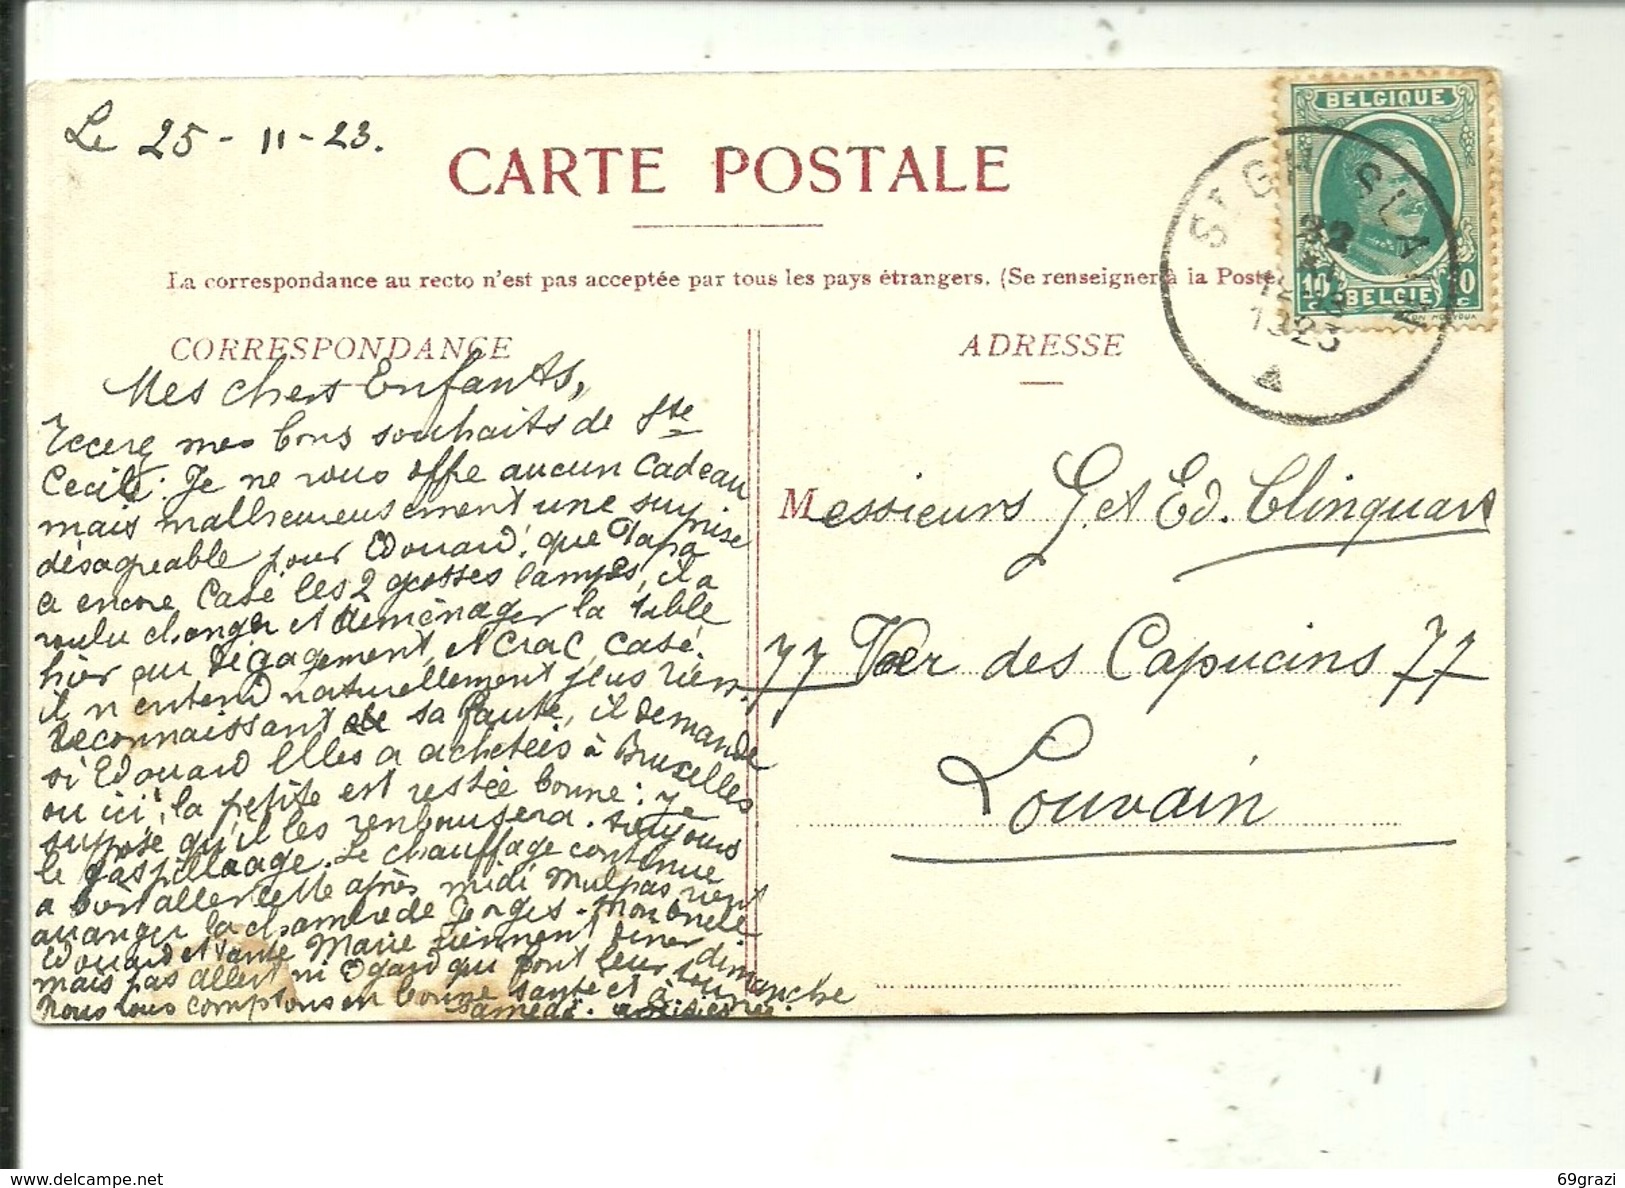 Le 25-11-23.
CARTE POSTALE
La correspondance au recto n'est pas acceptée par tous les pays étrangers. (Se renseigner à la Poste
BELGIQUE
10 BELGIE 10
ST GHISLAIN
1923
CORRESPONDANCE
ADRESSE
Mes chers Enfants,
mes bons souhaits de Ste
Cecile. Je ne vous offre aucun cadeau
mais malheureusement une surprise
désagreable pour Edouard, que Papa
a encore casé les 2 grosses lampes, il a
voulu changer et demènager la table
hier au dégagement, et crac, casé.
il n'entend naturellement plus rien.
Reconnaissant sa faute, il demande
si Edouard elles a achetées à Bruxelles
ou ici, la petite est restée bonne: je
suppose qu'il les renboursera. toujours
le gaspillaage. Le chauffage continue
a bien aller cette après midi Mulpas vient
arranger la chambre de Jorges. Mononcle
Edouard et tante Marie viennent diner dimanche
mais pas Albert ni Edgard qui font leur tournée.
Nous vous comptons en bonne santé et à
samedi.
Messieurs G. et Ed. Clinquart
77 Voer des Capucins 77
Louvain
69grazi